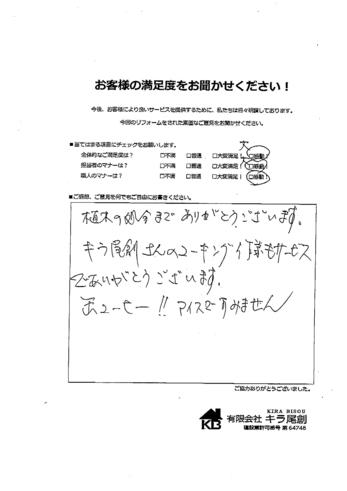 お客様の満足度をお聞かせください！
今後、お客様により良いサービスを提供するために、私たちは日々明練しております。
今回のリフォームをされた素直なご意見をお聞かせください。
■当てはまる項目にチェックをお願いします。
大
全体的なご満足度は？ □不満 □普通 □大変満足！ □感動！
担当者のマナーは？ □不満 □普通 □大変満足！ □感動！
職人のマナーは？ □不満 □普通 □大変満足！ □感動！
■ご感想、ご意見を何でもご自由にお書きください。
植木の処分まで ありがとうございます。
キラ尾創さんのコーキング イ様もサービス
でありがとうございます。
ューセー!! アイスですみません
ご協力ありがとうございました。
KIRA BISOU
KB 有限会社 キラ尾創
建設業許可番号 第64748